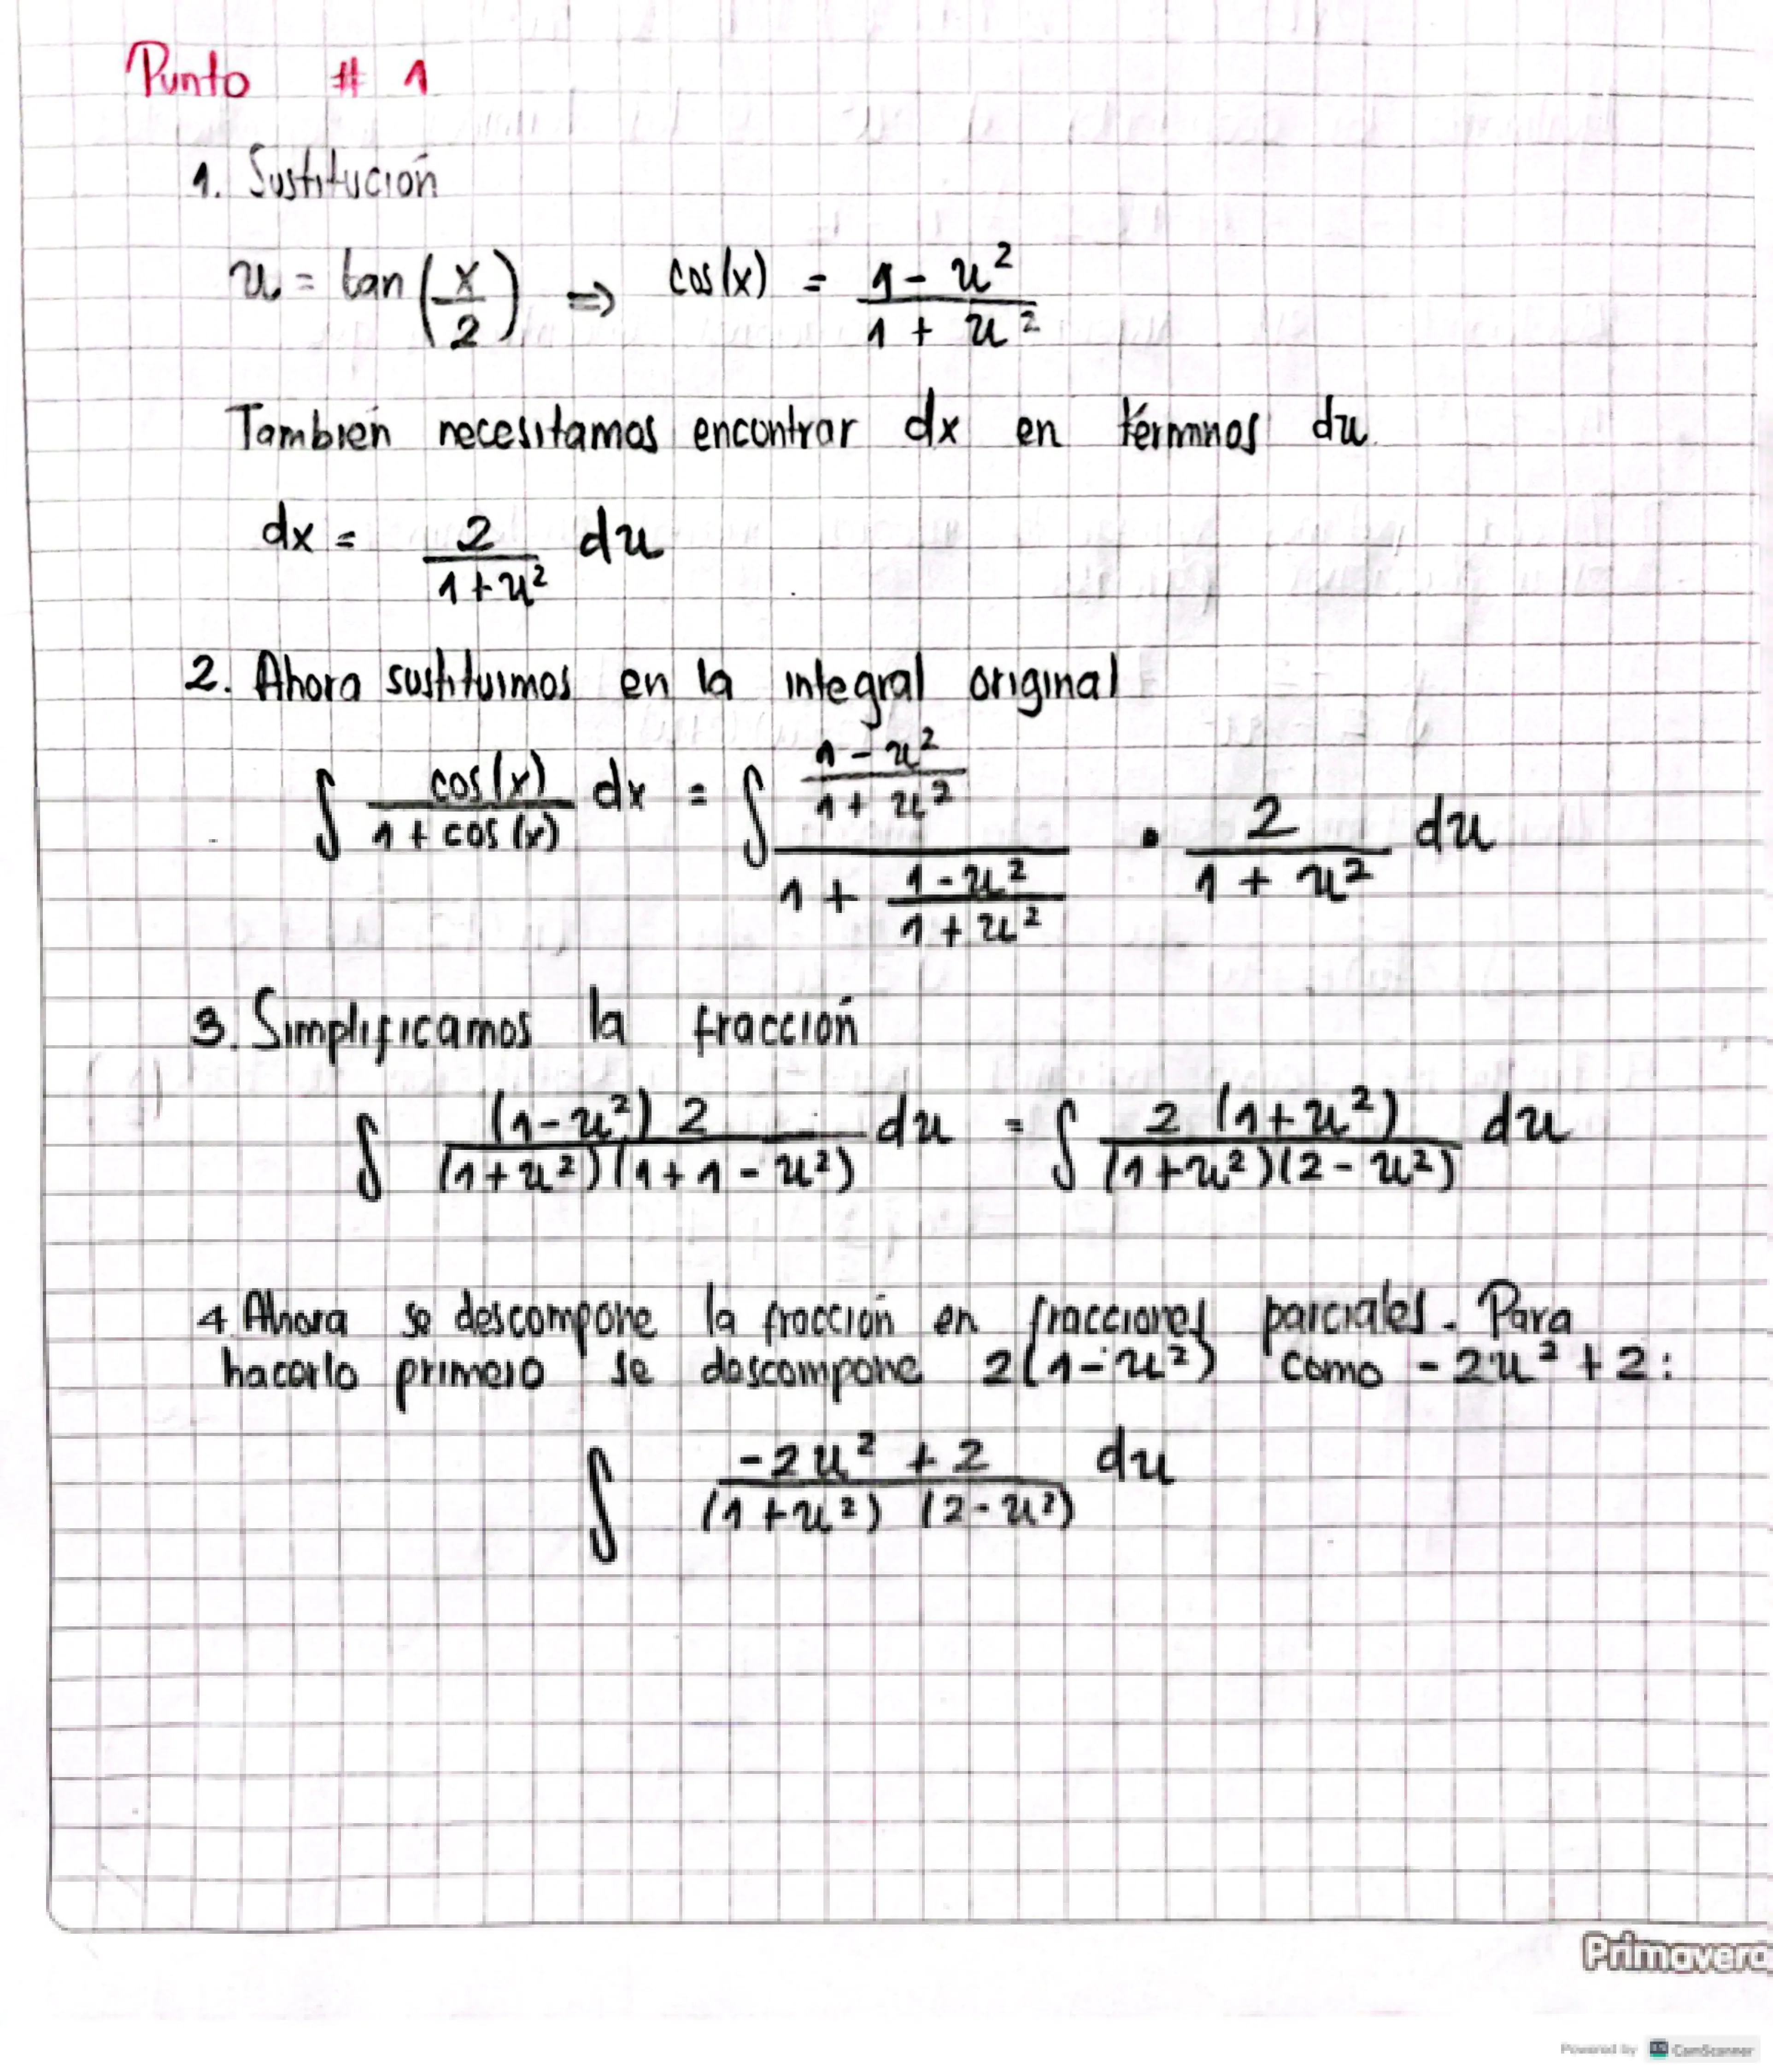 Punto # 1
1. Sustitución
u = tan(x/2) ⇒ cos(x) = (1 - u²)/(1 + u²)
También necesitamos encontrar dx en términos du
dx = 2/(1+u²) du
2. Ahora sustituimos en la integral original
∫ cos(x)/(1 + cos(x)) dx = ∫ ((1 - u²)/(1 + u²))/(1 + (1 - u²)/(1 + u²)) • 2/(1 + u²) du
3. Simplificamos la fracción
∫ (1-u²) 2/((1+u²)(1+1-u²)) du = ∫ 2 (1+u²)/((1+u²)(2-u²)) du
4 Ahora se descompone la fracción en fracciones parciales. Para
hacerlo primero se descompone 2(1-u²) como -2u² + 2:
∫ (-2u² + 2)/((1+u²) (2-u²)) du
Primavera
Powered by CS CamScanner